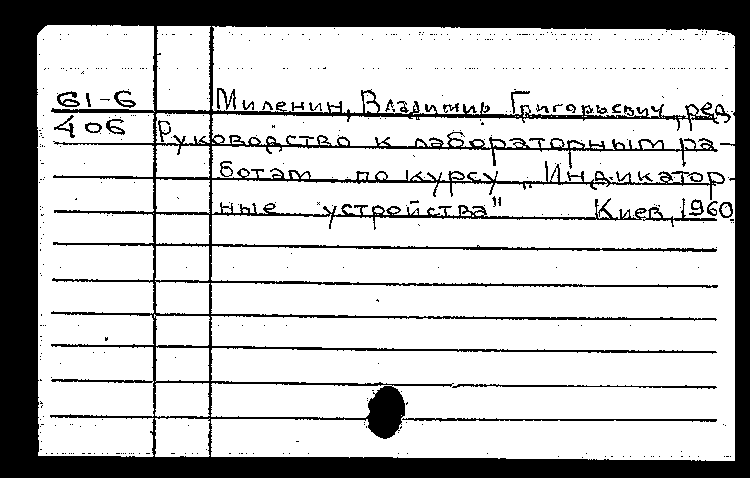 61-6 Миленин, Владимир Григорьевич, ред.
406 Руководство к лабораторным ра-
ботам по курсу „Индикатор-
ные устройства" Киев, 1960